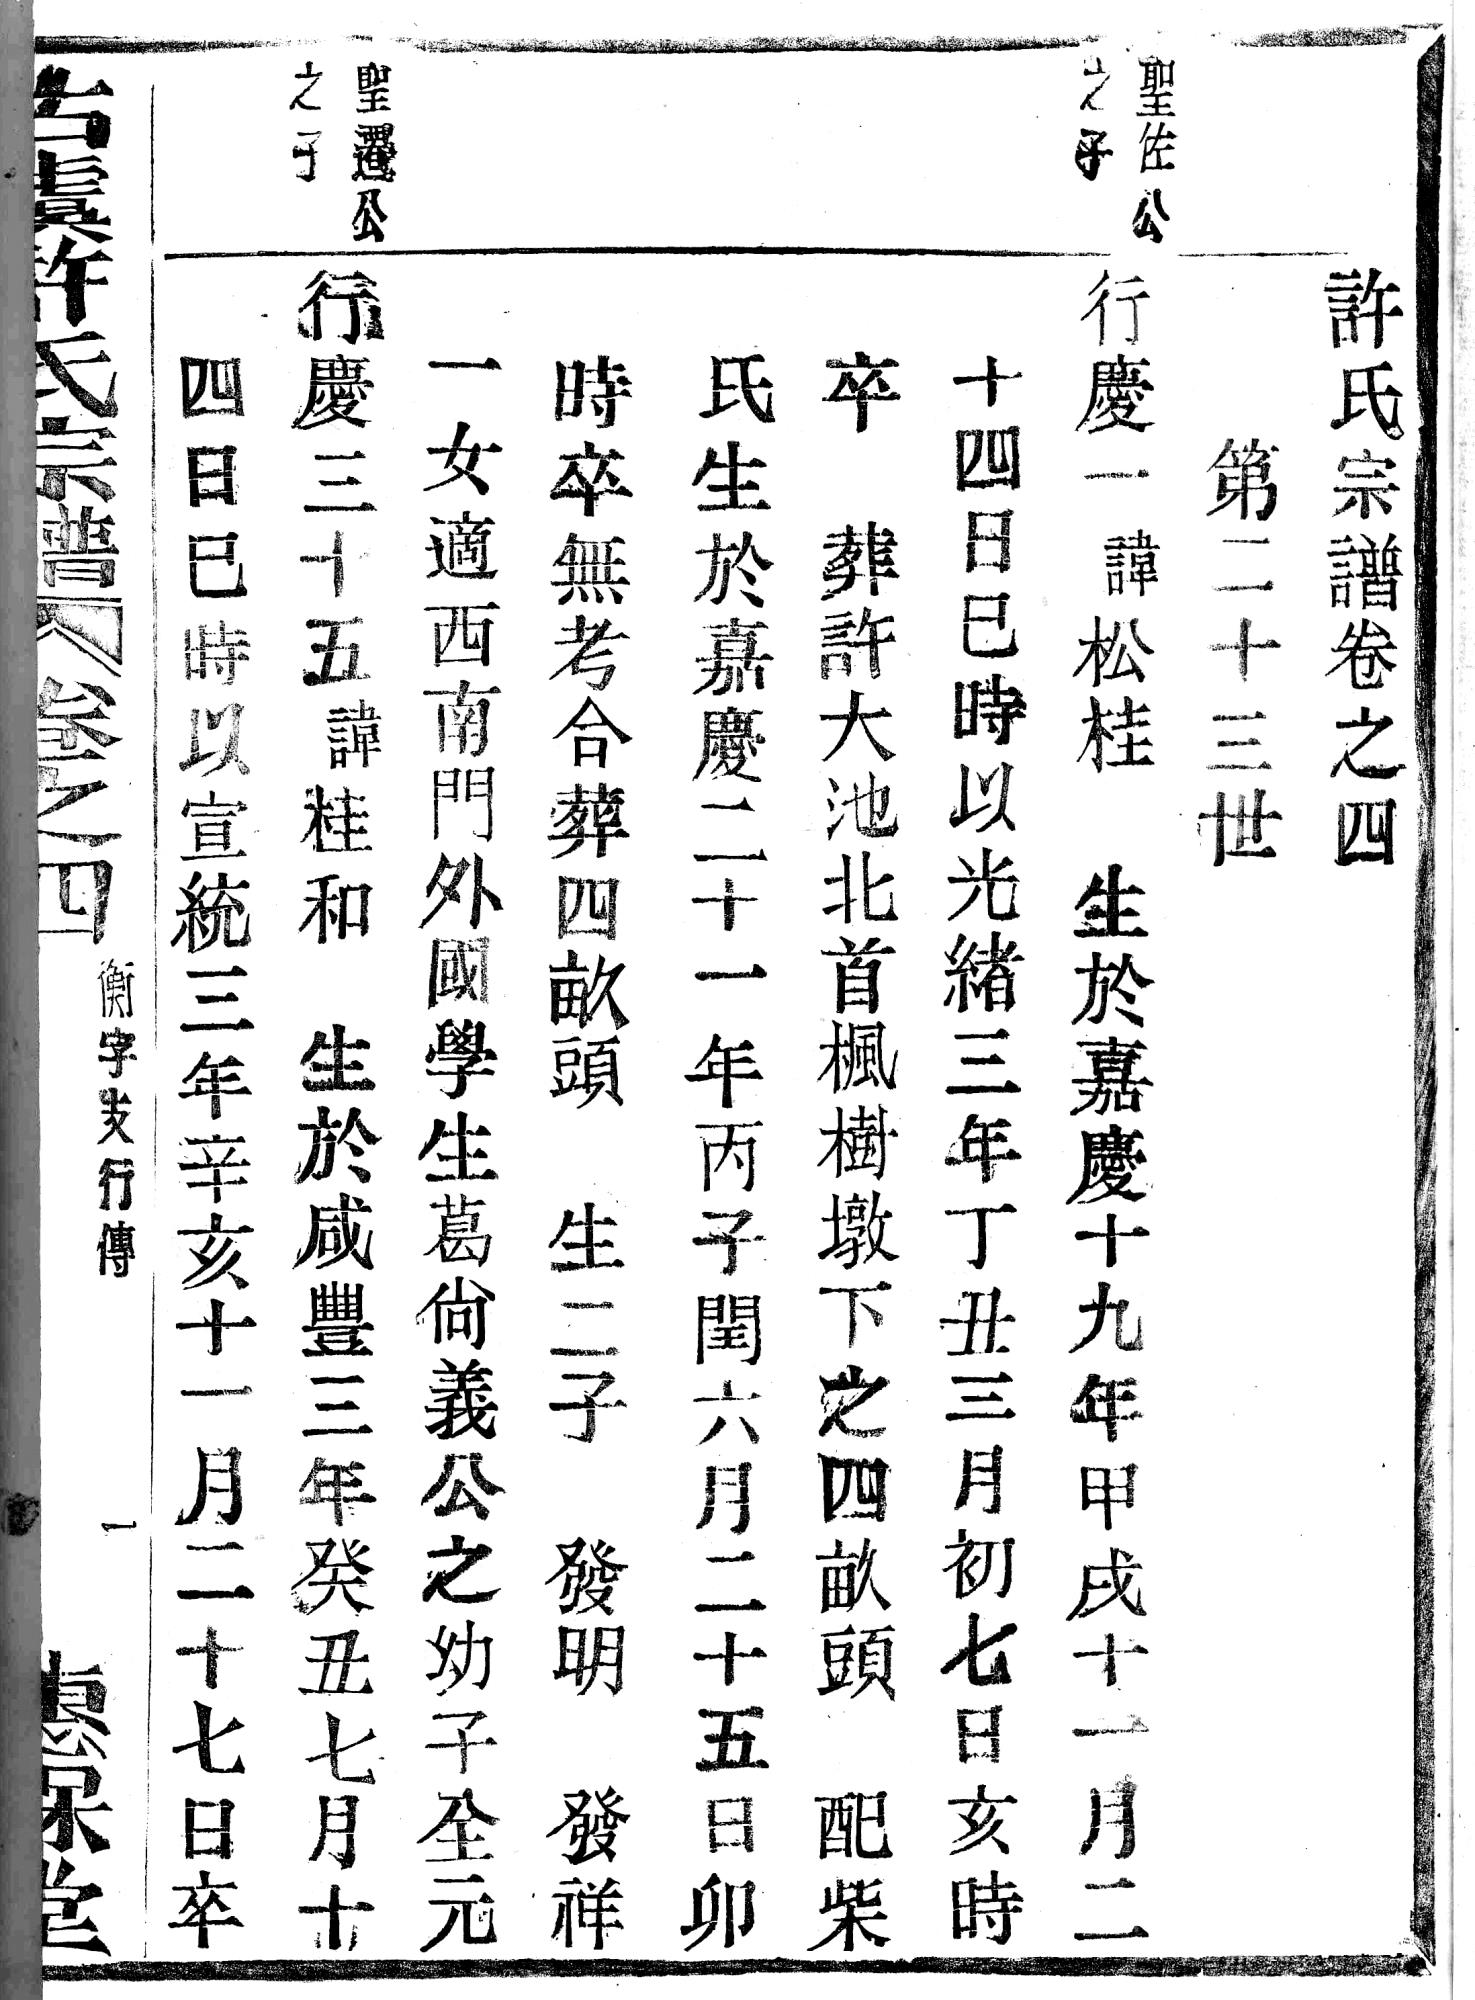 許氏宗譜卷之四
第二十三世
聖佐公
之子
行慶一諱松桂　生於嘉慶十九年甲戌十一月二
十四日巳時以光緒三年丁丑三月初七日亥時
卒　葬許大池北首楓樹墩下之四畝頭　配柴
氏生於嘉慶二十一年丙子閏六月二十五日卯
時卒無考合葬四畝頭　生二子　發明　發祥
一女適西南門外國學生葛尙義公之幼子全元
聖遷公
之子
行慶三十五諱桂和　生於咸豐三年癸丑七月十
四日巳時以宣統三年辛亥十一月二十七日卒
古虞許氏宗譜　卷之四　衡字支行傳　一　惠保堂